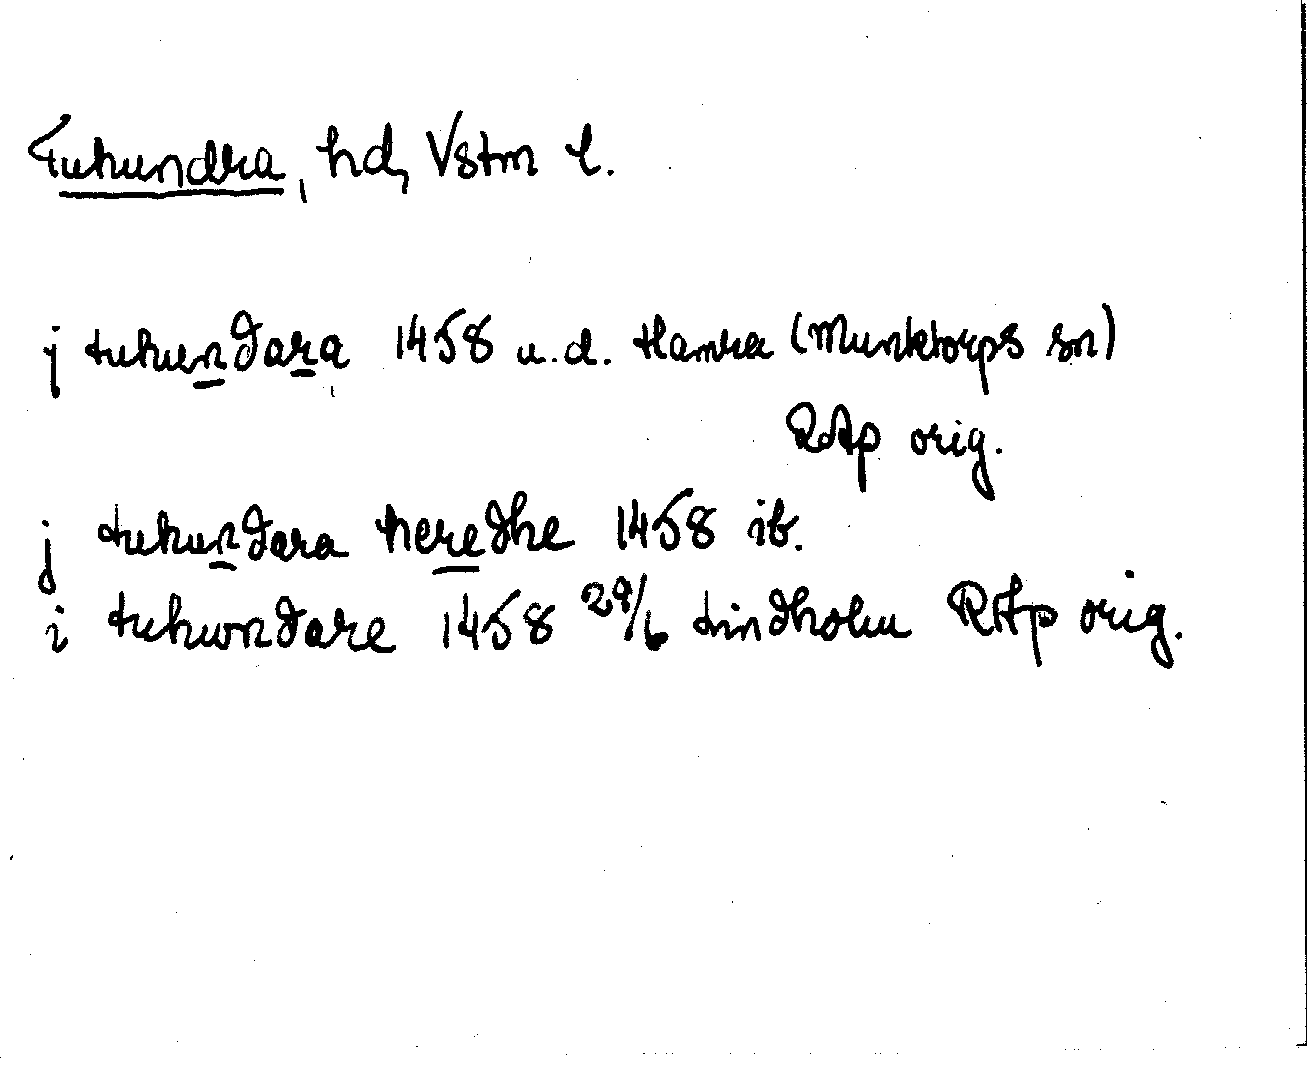 Tuhundra, hd, Vstm l.
j tuhundara 1458 u.d. Hamra (Munktorps sn)
RAp orig.
j tuhundara heredhe 1458 ib.
i tuhundare 1458 29/6 Lindholm RAp orig.